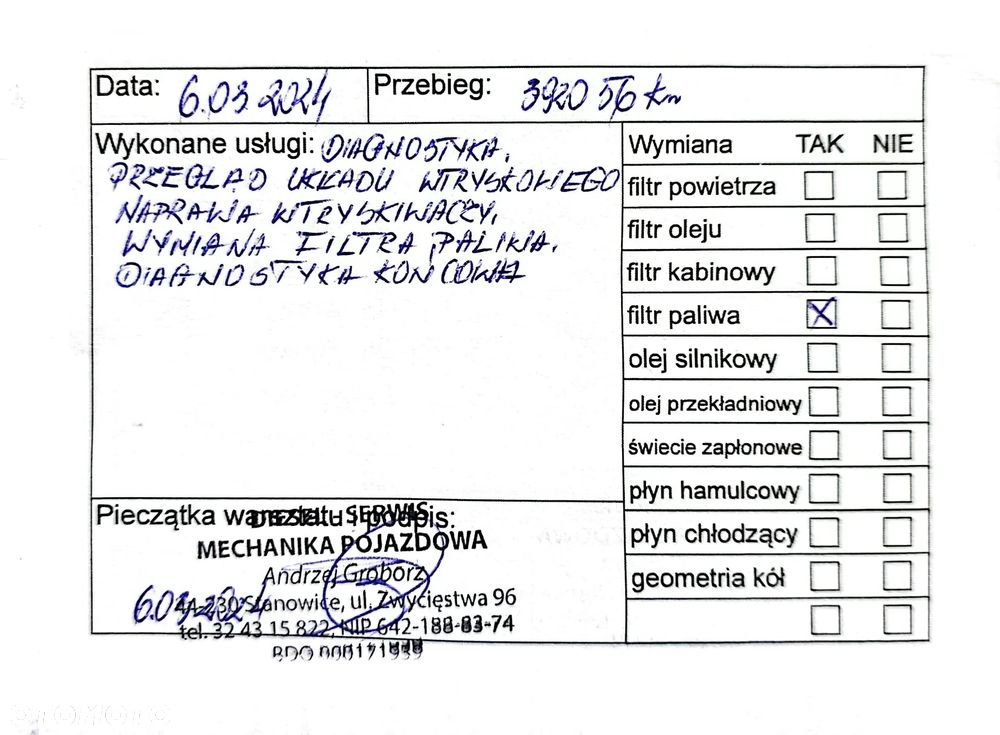 Data: 6.03.2024 Przebieg: 392056 km
Wykonane usługi: DIAGNOSTYKA,
PRZEGLĄD UKŁADU WTRYSKOWEGO
NAPRAWA WTRYSKIWACZY,
WYMIANA FILTRA PALIWA.
DIAGNOSTYKA KOŃCOWA
Wymiana TAK NIE
filtr powietrza
filtr oleju
filtr kabinowy
filtr paliwa X
olej silnikowy
olej przekładniowy
świecie zapłonowe
płyn hamulcowy
płyn chłodzący
geometria kół
Pieczątka warsztatu i podpis:
DIESEL - SERWIS
MECHANIKA POJAZDOWA
Andrzej Groborz
44-230 Stanowice, ul. Zwycięstwa 96
6.03.2024
tel. 32 43 15 822, NIP 642-188-83-74
BDO 000171939